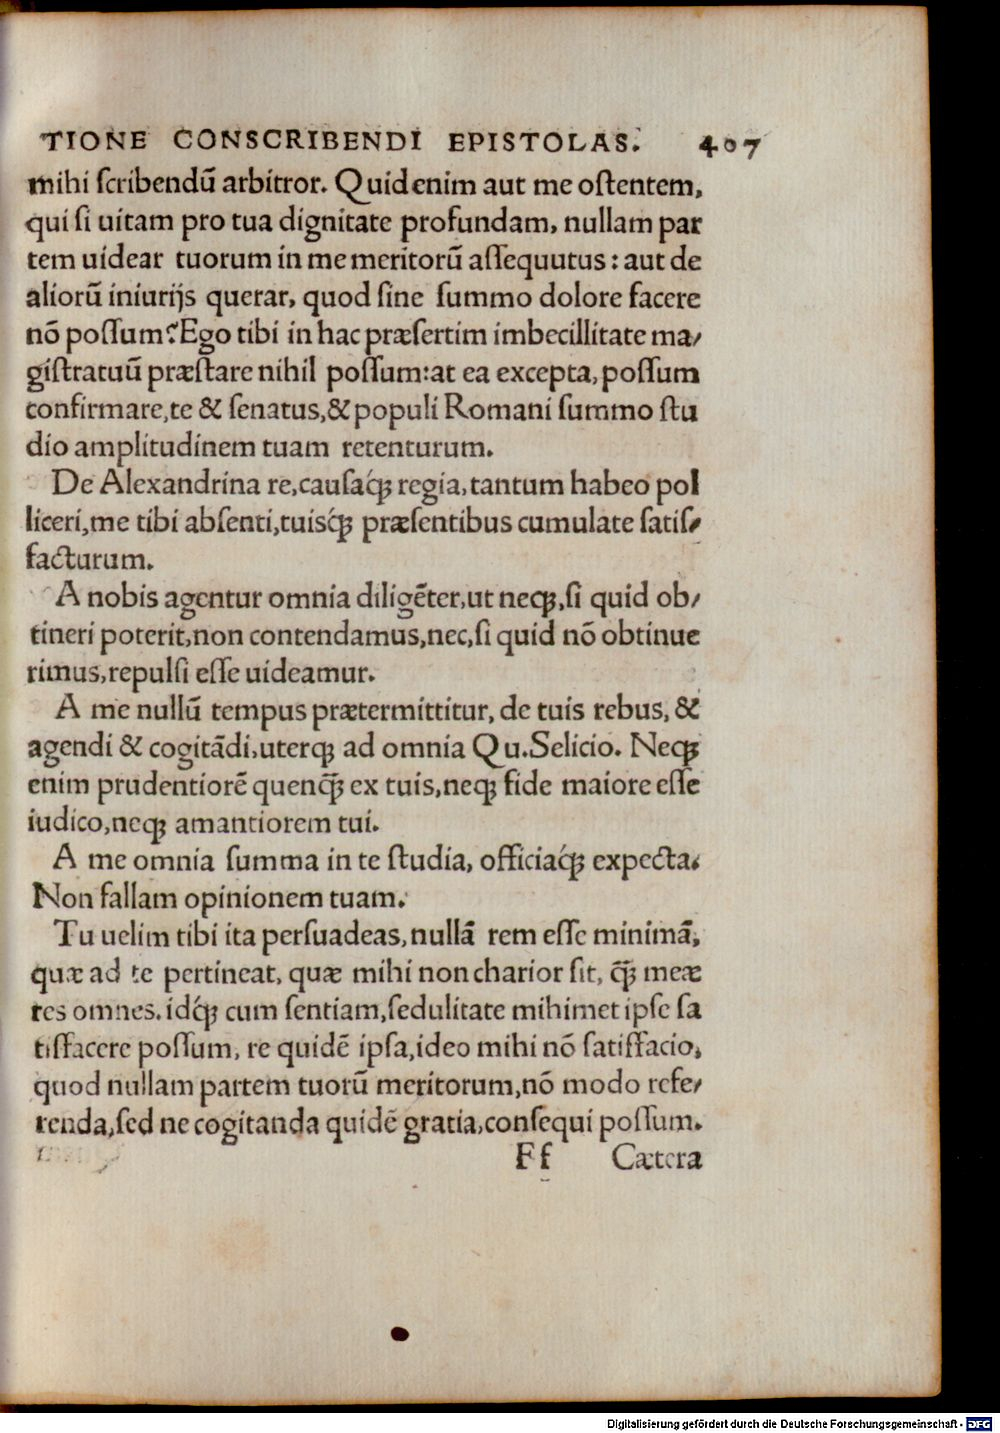 TIONE CONSCRIBENDI EPISTOLAS. 407
mihi ſcribendū arbitror. Quid enim aut me oſtentem,
qui ſi uitam pro tua dignitate profundam, nullam par
tem uidear tuorum in me meritorū aſſequutus: aut de
aliorū iniurijs querar, quod ſine ſummo dolore facere
nō poſſum? Ego tibi in hac præſertim imbecillitate ma/
giſtratuū præſtare nihil poſſum: at ea excepta, poſſum
confirmare, te & ſenatus, & populi Romani ſummo ſtu
dio amplitudinem tuam retenturum.
De Alexandrina re, cauſaq́ꝫ regia, tantum habeo pol
liceri, me tibi abſenti, tuisq́ꝫ præſentibus cumulate ſatiſ/
facturum.
A nobis agentur omnia diligēter, ut neqꝫ, ſi quid ob/
tineri poterit, non contendamus, nec, ſi quid nō obtinue
rimus, repulſi eſſe uideamur.
A me nullū tempus prætermittitur, de tuis rebus, &
agendi & cogitādi, uterqꝫ ad omnia Qu. Selicio. Neqꝫ
enim prudentiorē quenq̄ꝫ ex tuis, neqꝫ fide maiore eſſe
iudico, neqꝫ amantiorem tui.
A me omnia ſumma in te ſtudia, officiaq́ꝫ expecta.
Non fallam opinionem tuam.
Tu uelim tibi ita perſuadeas, nullā rem eſſe minimā,
quæ ad te pertineat, quæ mihi non charior ſit, q̄ꝫ meæ
res omnes. idq́ꝫ cum ſentiam, ſedulitate mihimet ipſe ſa
tiſfacere poſſum, re quidē ipſa, ideo mihi nō ſatiſfacio,
quod nullam partem tuorū meritorum, nō modo refe/
renda, ſed ne cogitanda quidē gratia, conſequi poſſum.
Ff Cætera
Digitalisierung gefördert durch die Deutsche Forschungsgemeinschaft - DFG